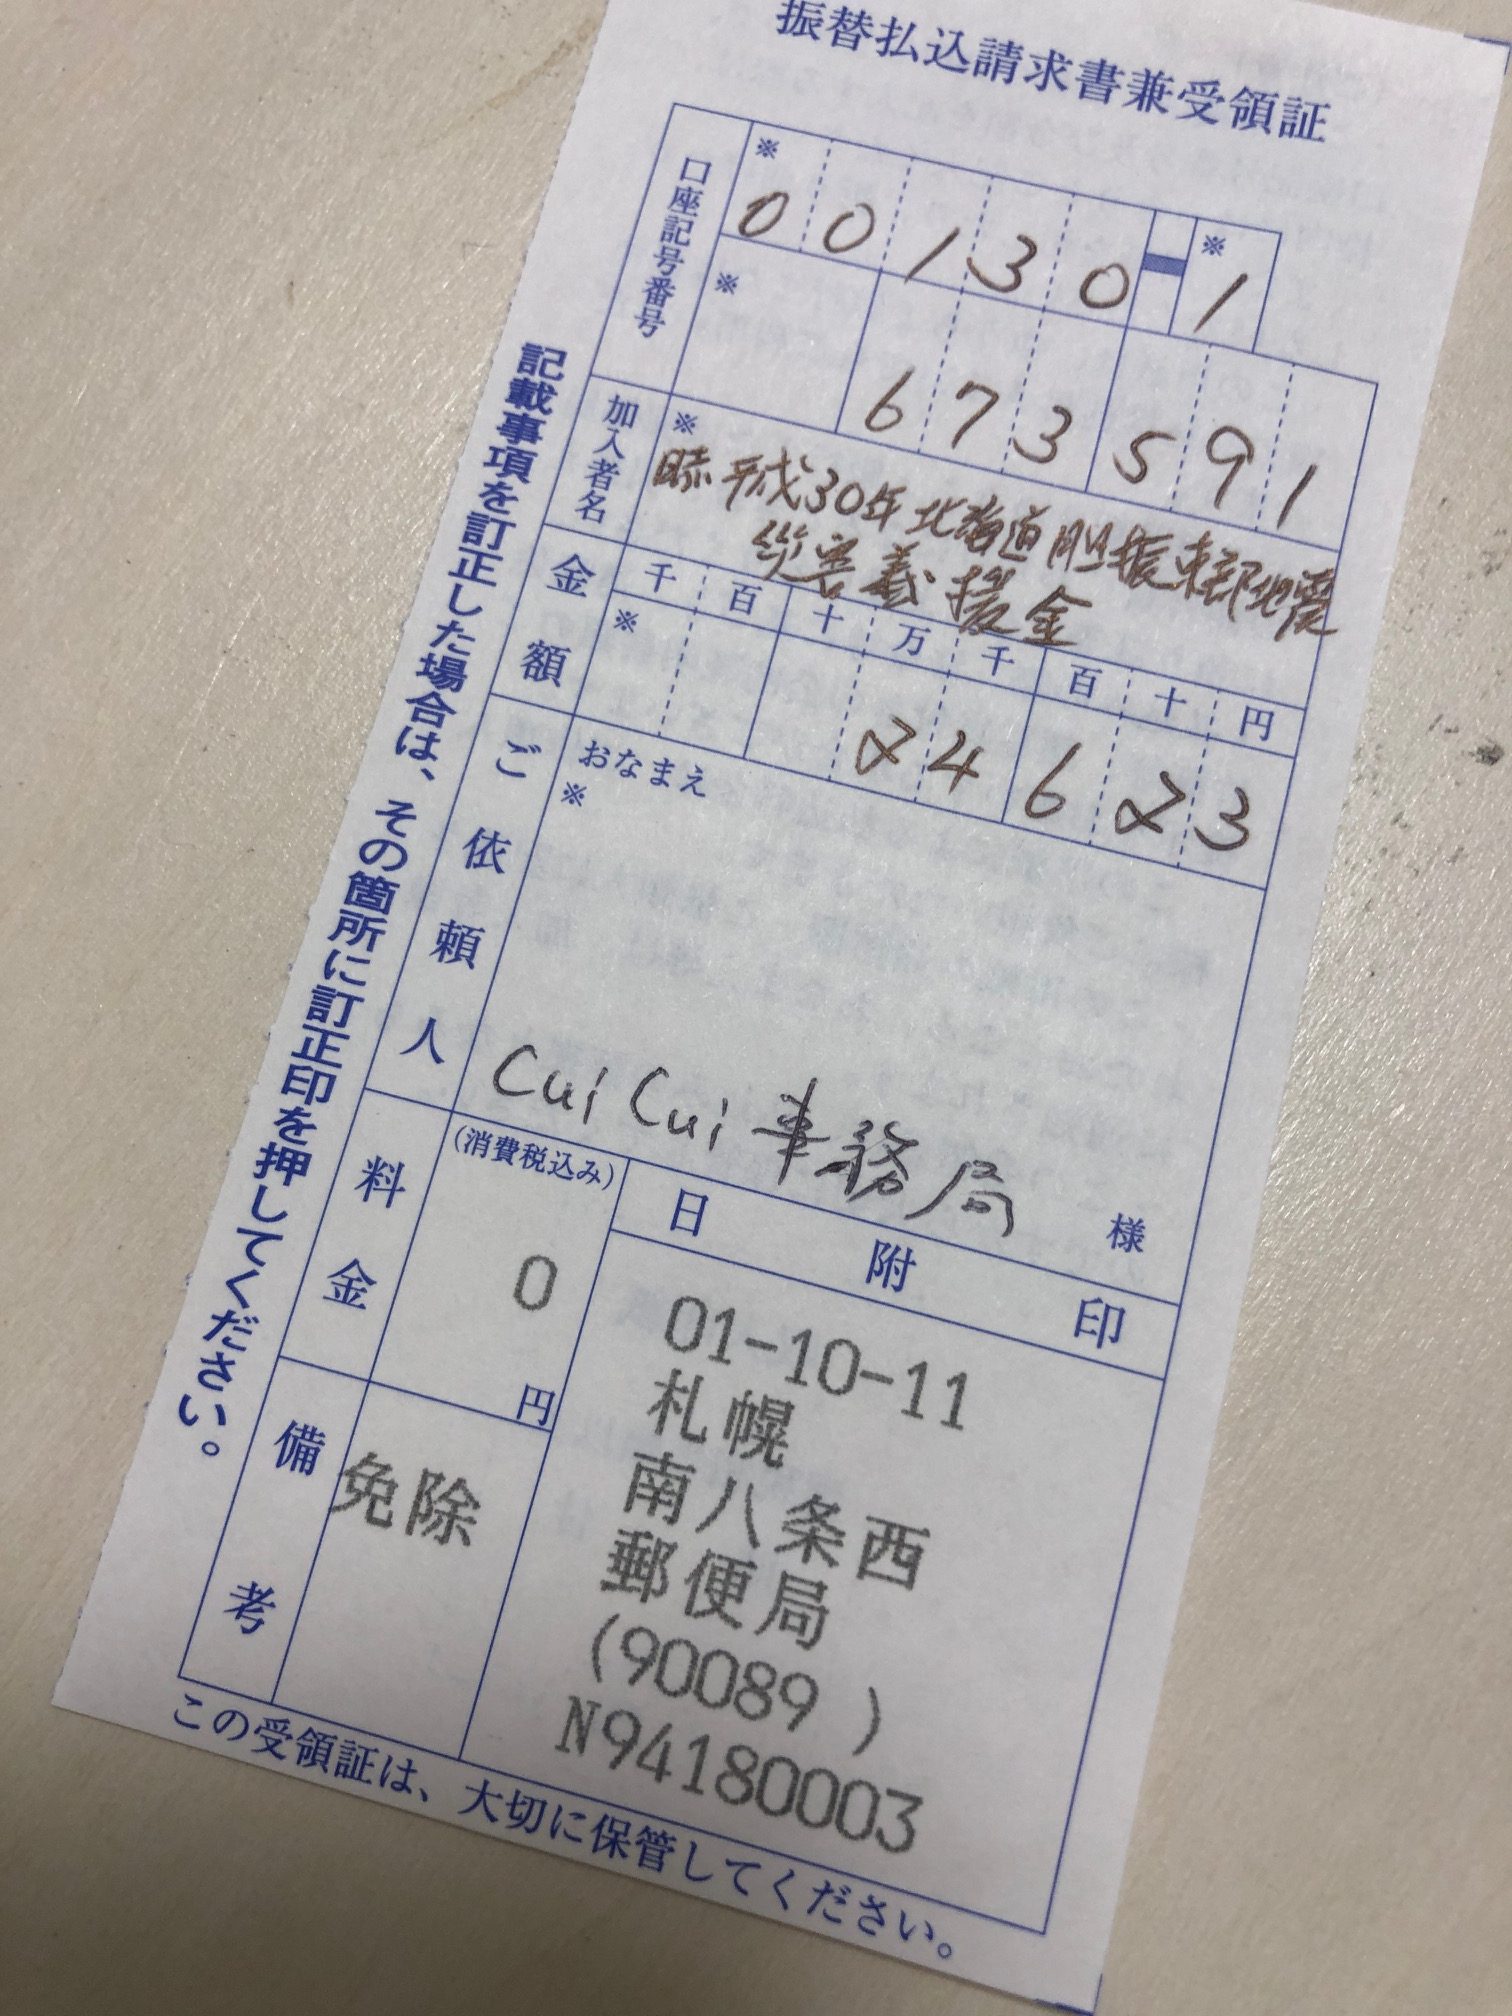 振替払込請求書兼受領証
口座記号番号
※ 00130-1 ※
※ 673591
加入者名
※
日赤 平成30年北海道胆振東部地震
災害義援金
金額
千 百 十 万 千 百 十 円
※ 24623
ご依頼人
おなまえ
※
Cui Cui 事務局 様
料金
(消費税込み)
0
円
日附印
01-10-11
札幌
南八条西
郵便局
(90089 )
N94180003
備考
免除
記載事項を訂正した場合は、その箇所に訂正印を押してください。
この受領証は、大切に保管してください。